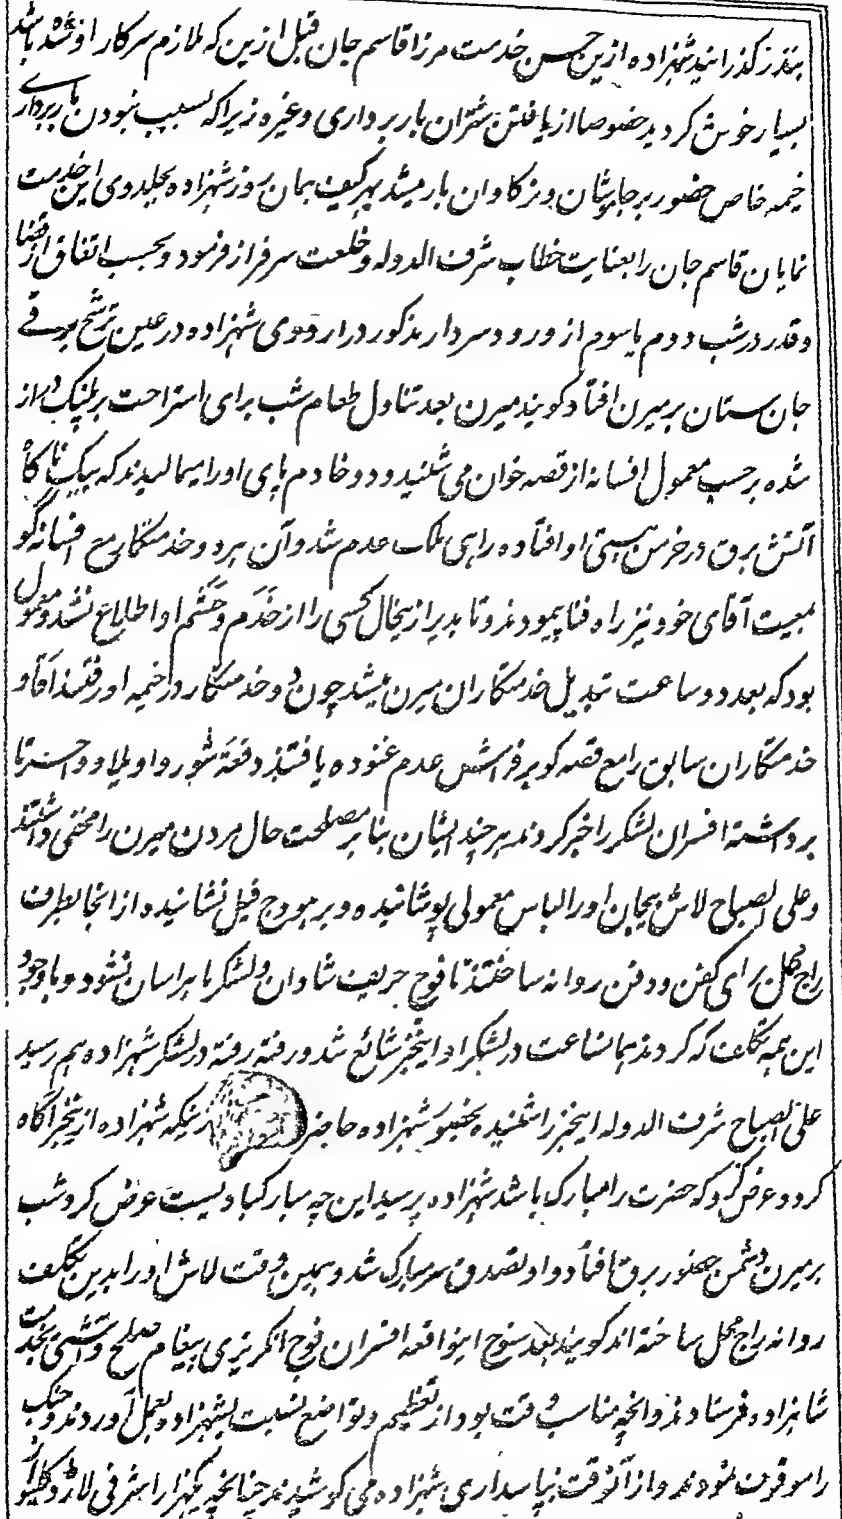 بنذر گذرانید شهزاده ازین حسن خدمت مرزا قاسم جان قبل ازین که ملازم سرکار او شده باشد
بسیار خوش گردید خصوصا از یافتن شتران باربرداری و غیره زیرا که بسبب نبودن باربرداری
خیمه خاص حضور بر چارپایان و نرگاوان بار میشد بهر کیف همان روز شهزاده بجلدوی این خدمت
نمایان قاسم جان را بعنایت خطاب شرف الدوله و خلعت سرفراز فرمود و بحسب اتفاق از قضا
و قدر در شب دوم یا سوم از ورود سردار مذکور در اردوی شهزاده در عین ترشح برقی
جان ستان بر میرن افتاد گویند میرن بعد تناول طعام شب برای استراحت بر پلنگ دراز
شده بر حسب معمول افسانه از قصه خوان می شنید و دو خادم پای او را میمالیدند که بیک ناگاه
آتش برق در خرمن هستی او افتاده راهی ملک عدم شد و آن هر دو خدمتگار مع افسانه گو
بمعیت آقای خود نیز راه فنا پیمودند و تا بدیر ازینحال کسی را از خَدَم و حَشَم او اطلاع نشد و معمول
بود که بعد دو ساعت تبدیل خدمتگاران میرن میشد چون دو خدمتگار در خیمه او رفتند آقا و
خدمتگاران سابق را مع قصه گو بر فراش عدم غنوده یافتند دفعةً شور واویلا و وا حسرتا
برداشته افسران لشکر را خبر کردند هر چند ایشان بنا بر مصلحت حال مردن میرن را مخفی داشتند
و علی الصباح لاش بیجان او را لباس معمولی پوشانیده و بر هودج فیل نشانیده از انجا بطرف
راج محل برای کفن و دفن روانه ساختند تا فوج حریف شادان و لشکر ما هراسان نشود و باوجود
این همه تکلف که کردند همانساعت در لشکر او اینخبر شائع شد و رفته رفته در لشکر شهزاده هم رسید
علی الصباح شرف الدوله اینخبر را شنیده بحضور شهزاده حاضر نیکه شهزاده ازینخبر آگاه
گردد عرض کرد که حضرت را مبارک باشد شهزاده پرسید این چه مبارکباد یست عرض کرد شب
بر میرن دشمن حضور برق افتاد و او تصدق سر مبارک شد و همین وقت لاش او را بدین تکلف
روانه راج محل ساخته اند گویند بعد سنوح اینواقعه افسران فوج انگریزی پیغام صلح و آشتی بخدمت
شاهزاده فرستادند و انچه مناسب وقت بود از تعظیم و تواضع نسبت بشهزاده بعمل آوردند و جنگ
را موقوف نمودند و از آنوقت بپاسداری شهزاده می کوشیدند چنانچه یکهزار اشرفی لارڈ کلیو از